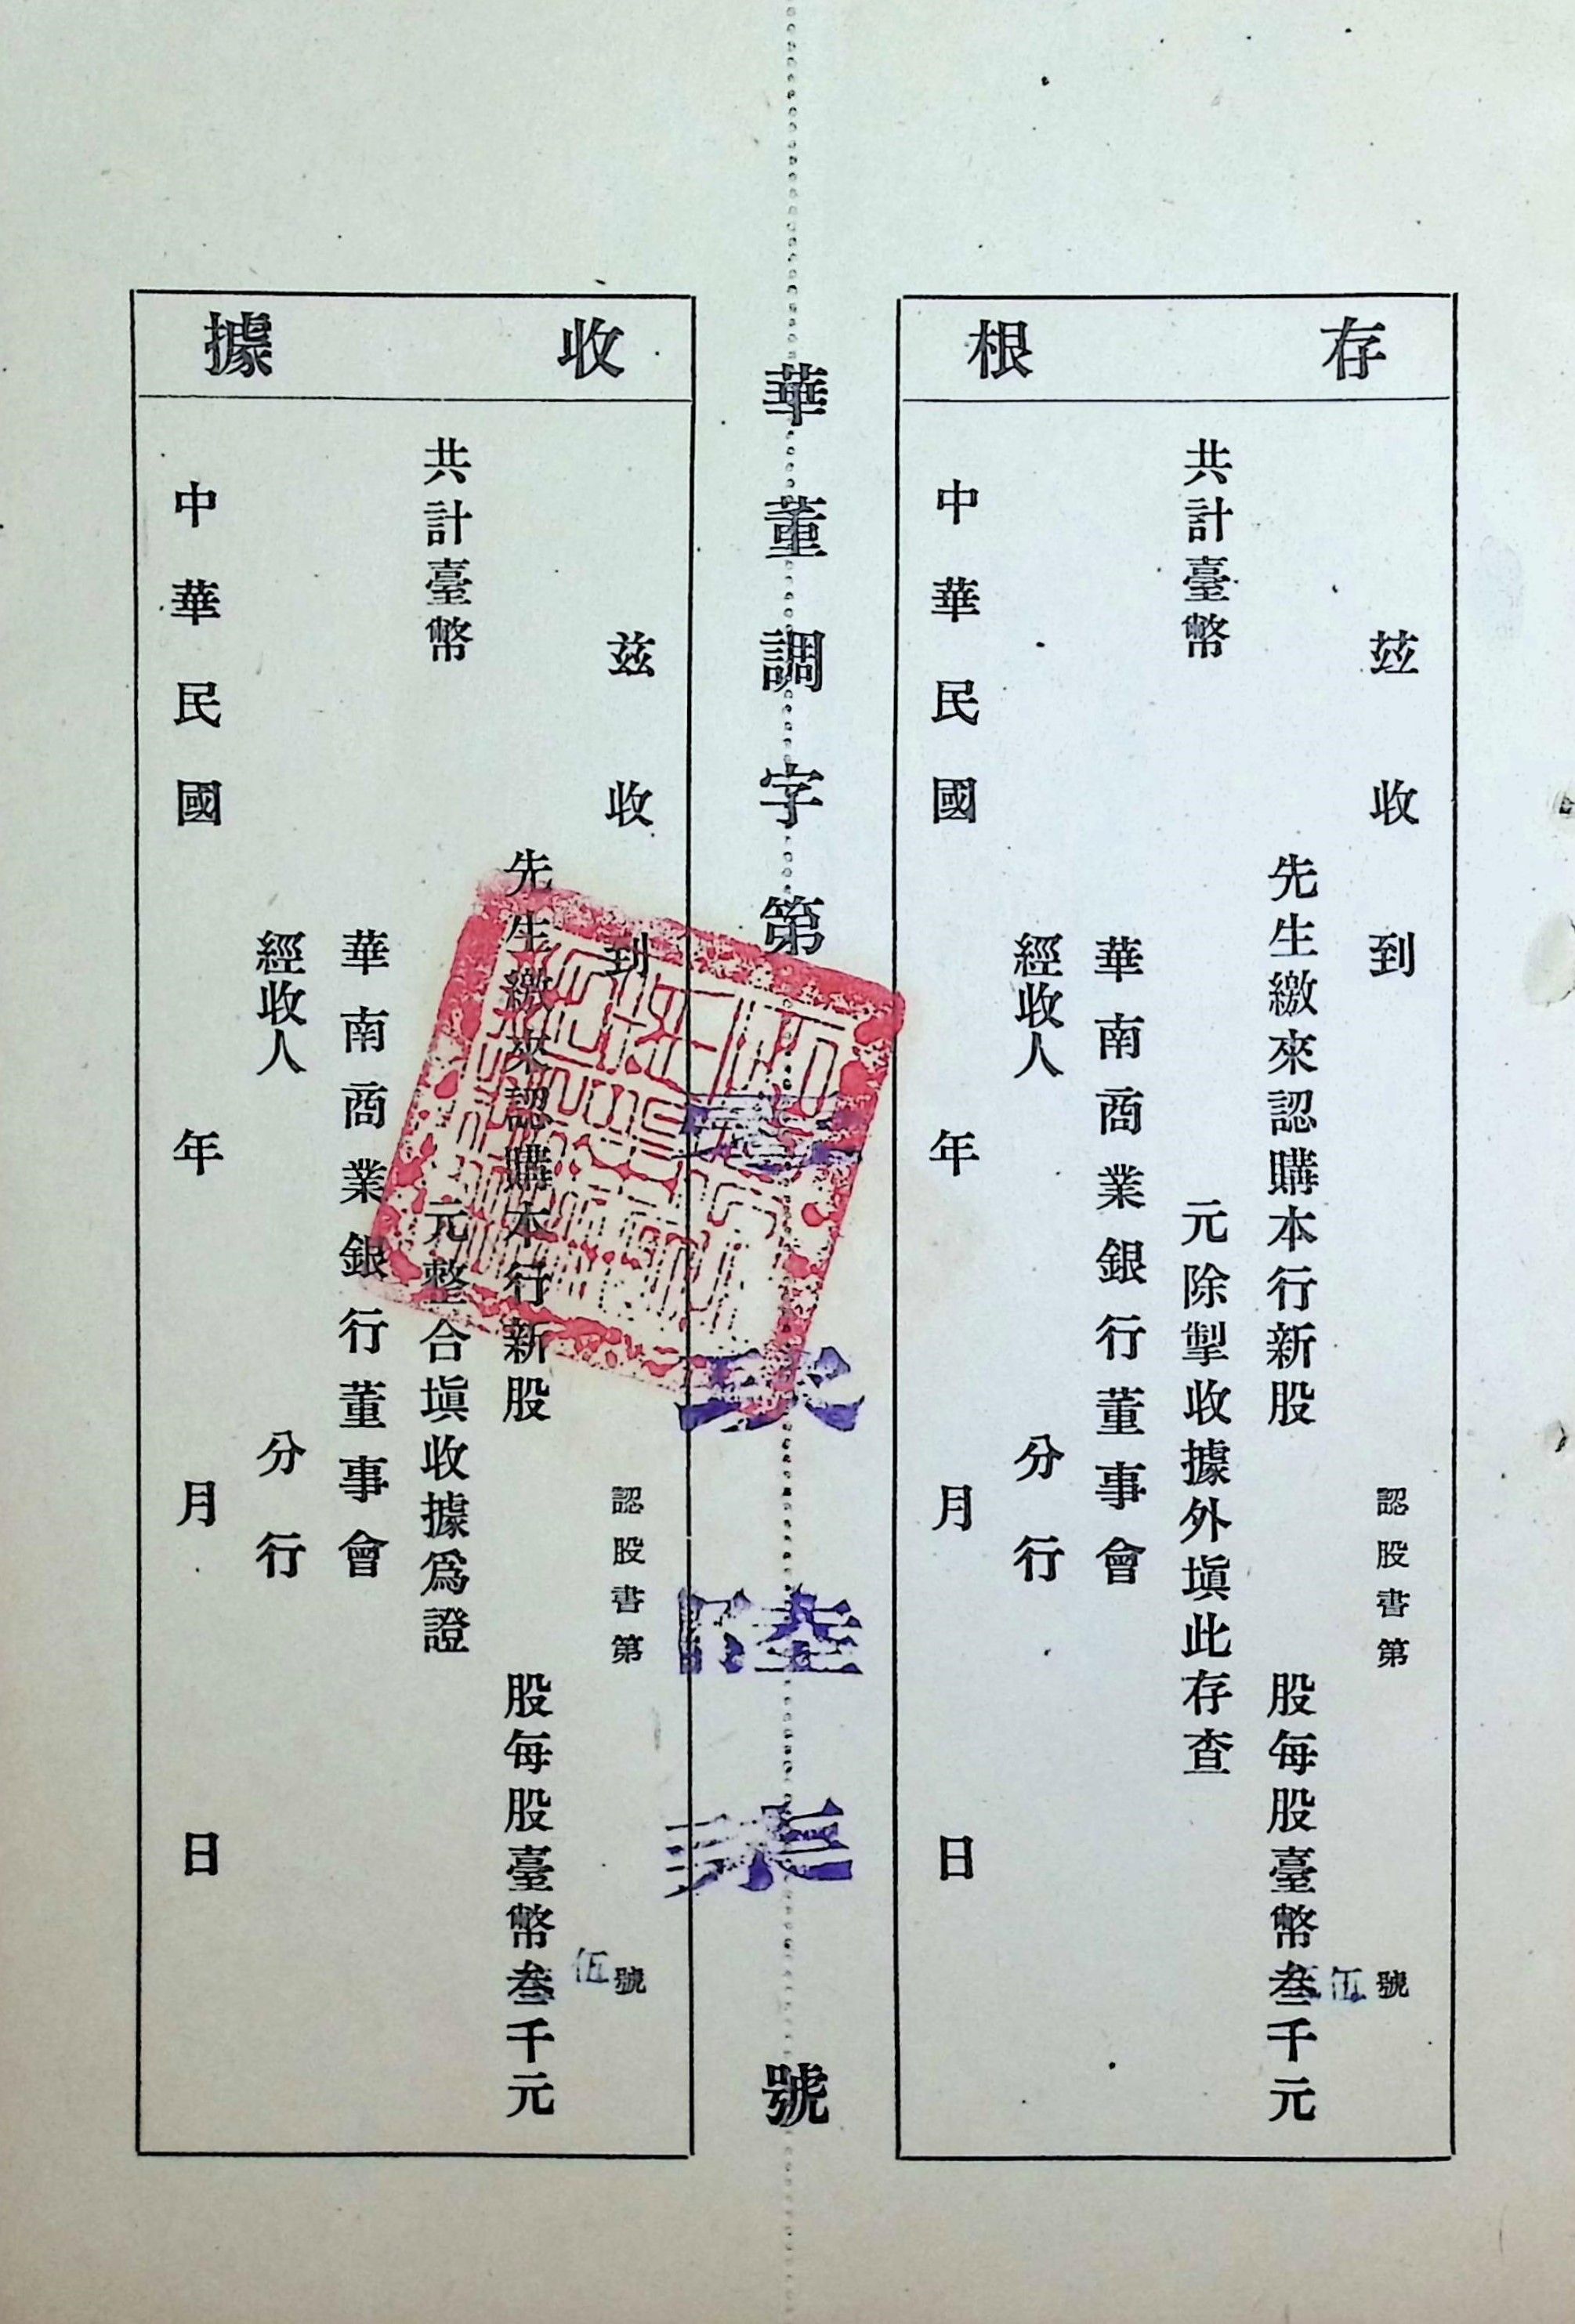 存根
茲收到 認股書第 伍號
先生繳來認購本行新股 股每股臺幣叁千元
共計臺幣 元除掣收據外塡此存查
華南商業銀行董事會
經收人 分行
中華民國 年 月 日
華董調字第 陸 號
收據
茲收到 認股書第 伍號
先生繳來認購本行新股 股每股臺幣叁千元
共計臺幣 元整合塡收據爲證
華南商業銀行董事會
經收人 分行
中華民國 年 月 日